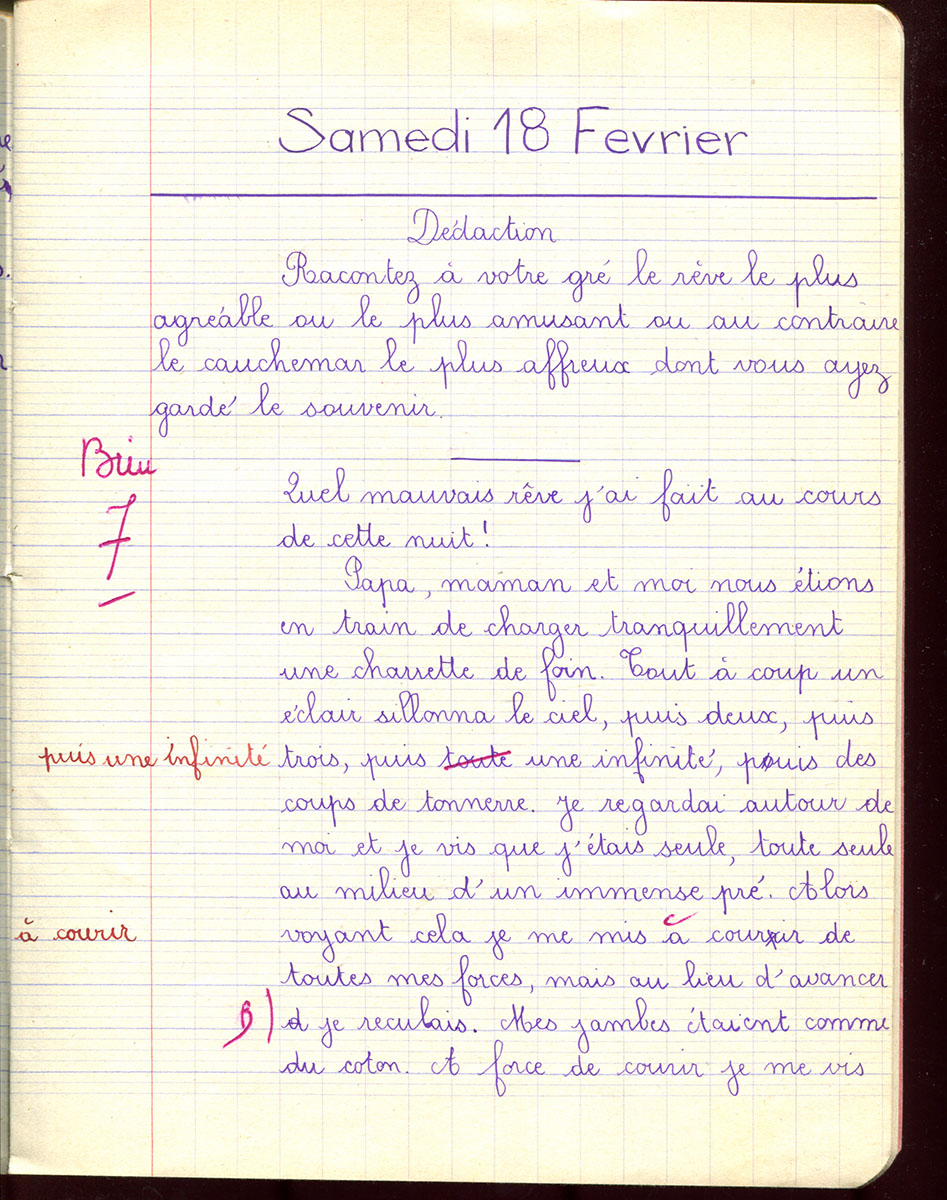 Samedi 18 Fevrier
Rédaction
Racontez à votre gré le rêve le plus
agréable ou le plus amusant ou au contraire
le cauchemar le plus affreux dont vous ayez
gardé le souvenir.
Bien
7
Quel mauvais rêve j'ai fait au cours
de cette nuit !
Papa, maman et moi nous étions
en train de charger tranquillement
une charrette de foin. Tout à coup un
éclair sillonna le ciel, puis deux, puis
puis une infinité
trois, puis toute une infinité, puis des
coups de tonnerre. Je regardai autour de
moi et je vis que j'étais seule, toute seule
au milieu d'un immense pré. Alors
à courir
voyant cela je me mis à courir de
toutes mes forces, mais au lieu d'avancer
B
je reculais. Mes jambes étaient comme
du coton. A force de courir je me vis